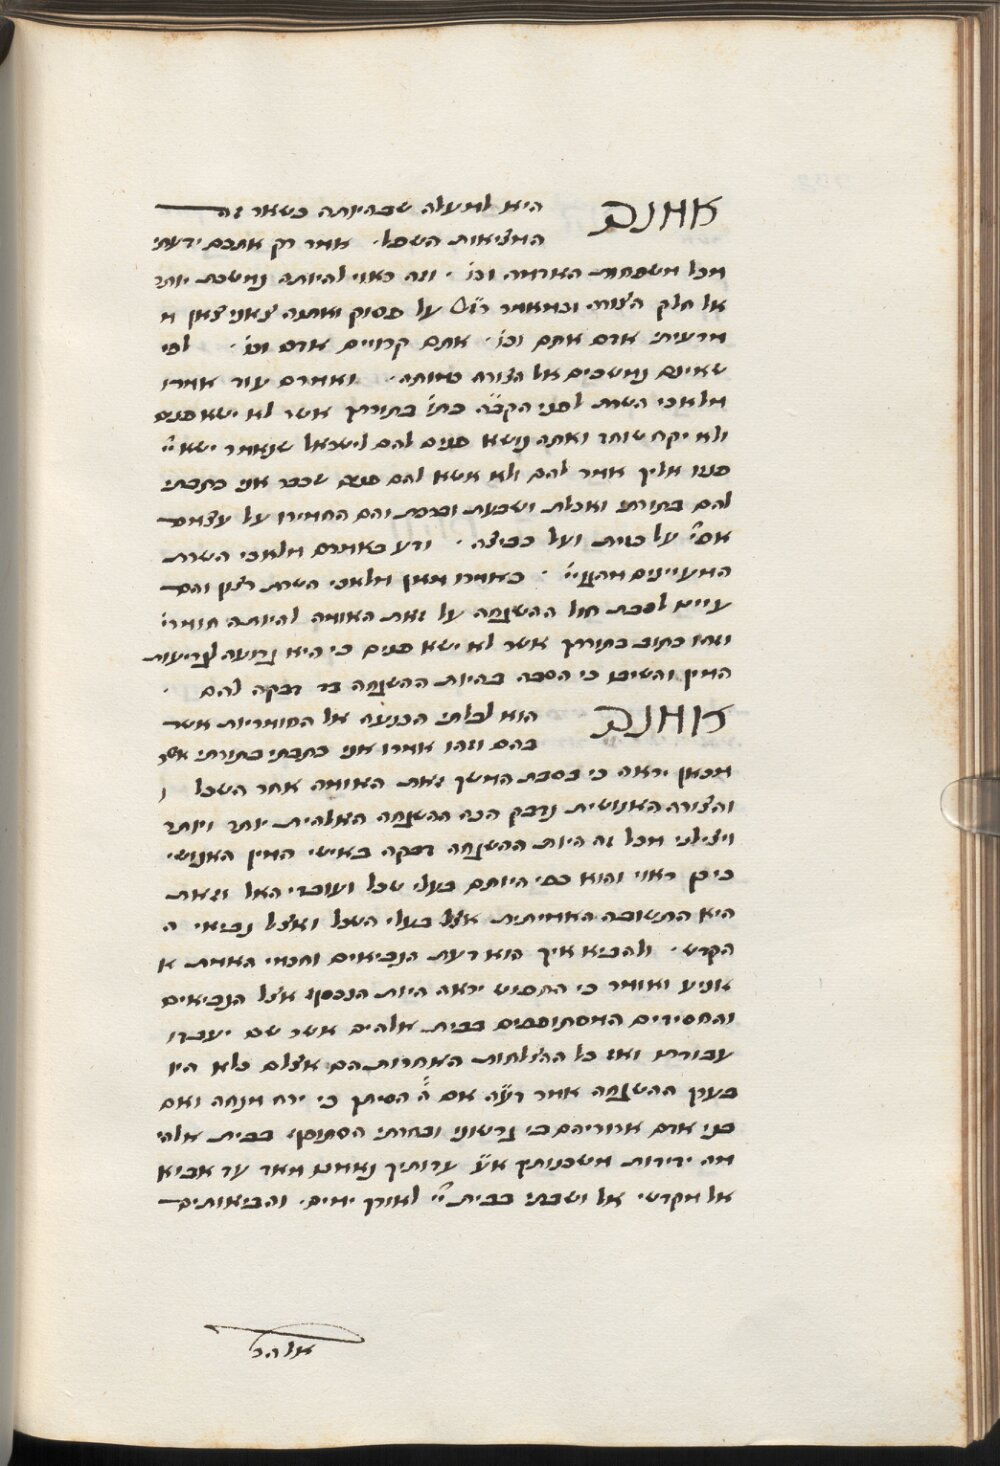 אמנם היא למעלה שבהיותה כשאר זה
המציאות השפל · אמר רק אתכם ידעתי
מכל משפחות האדמה וכו' · וזה ראוי להיותה נמשכת יותר
אל חלק הצורה וכמאמר ר"ל על פסוק ואתנה צאני צאן מ
מרעיתי אדם אתם וכו' · אתם קרויים אדם וכו' · לפי
שאינם נמשכים אל הצורה כמותה · ואמרם עוד אמרו
מלאכי השרת לפני הקב"ה כתו' בתורתך אשר לא ישא פנים
ולא יקח שוחד ואתה נושא פנים להם לישראל שנאמר ישא יי'
פניו אליך אמר להם ולא אשא להם פנים שכבר אני כתבתי
להם בתורתי ואכלת ושבעת וברכת והם החמירו על עצמם
אפי' על כזית ועל כביצה · ודע באמרם מלאכי השרת
כאמרו מאן מלאכי השרת רצון והם
עיים לסבת חול ההשגחה על זאת האומה להיותה חומרי'
וזהו כתוב בתורתך אשר לא ישא פנים כי היא גרועה לגריעות
המין והשיבו כי הסבה בהיות ההשגחה בד דבקה להם ·
אמנם הוא לבלתי הכנעה אל החומריות אשר
בהם וזהו אמרו אני כתבתי בתורתי אשר
מכאן יראה כי בסבת המשך זאת האומה אחר השכל ו
והצורה האנושית נדבק הכה ההשגחה האלהית יותר ויותר
ויצילני מכל זה היות ההשגחה דבקה באישי המין האנושי
כיון ראוי והוא כפי היותם בעלי שכל ועובדי האל וזאת
היא התשובה האמיתית אצל בעלי השכל ואצל נביאי ה
הקדש · ולהביא איך הוא דעת הנביאים וחכמי האמת א
אגיע ואומר כי החפש יראה היות הנכסף אצל הנביאים
והחסידים המסתופפים בבית אלהים אשר שם יעבדו
עבודתו ואז כל ההצלחות האחרות הם אצלם כלא היו
בערך ההשגחה אמר דע"ה אם ה' הסיתך בי ירח מנחה ואם
בני אדם ארורים הם כי גרשוני ובחרתי הסתופף בבית אלהי
מה ידידות משכנותיך אע' עדותיך נאמנו מאד עד אביא
אל מקדשי אל ושבתי בבית יי' לאורך ימים · והביאותים
אל הר